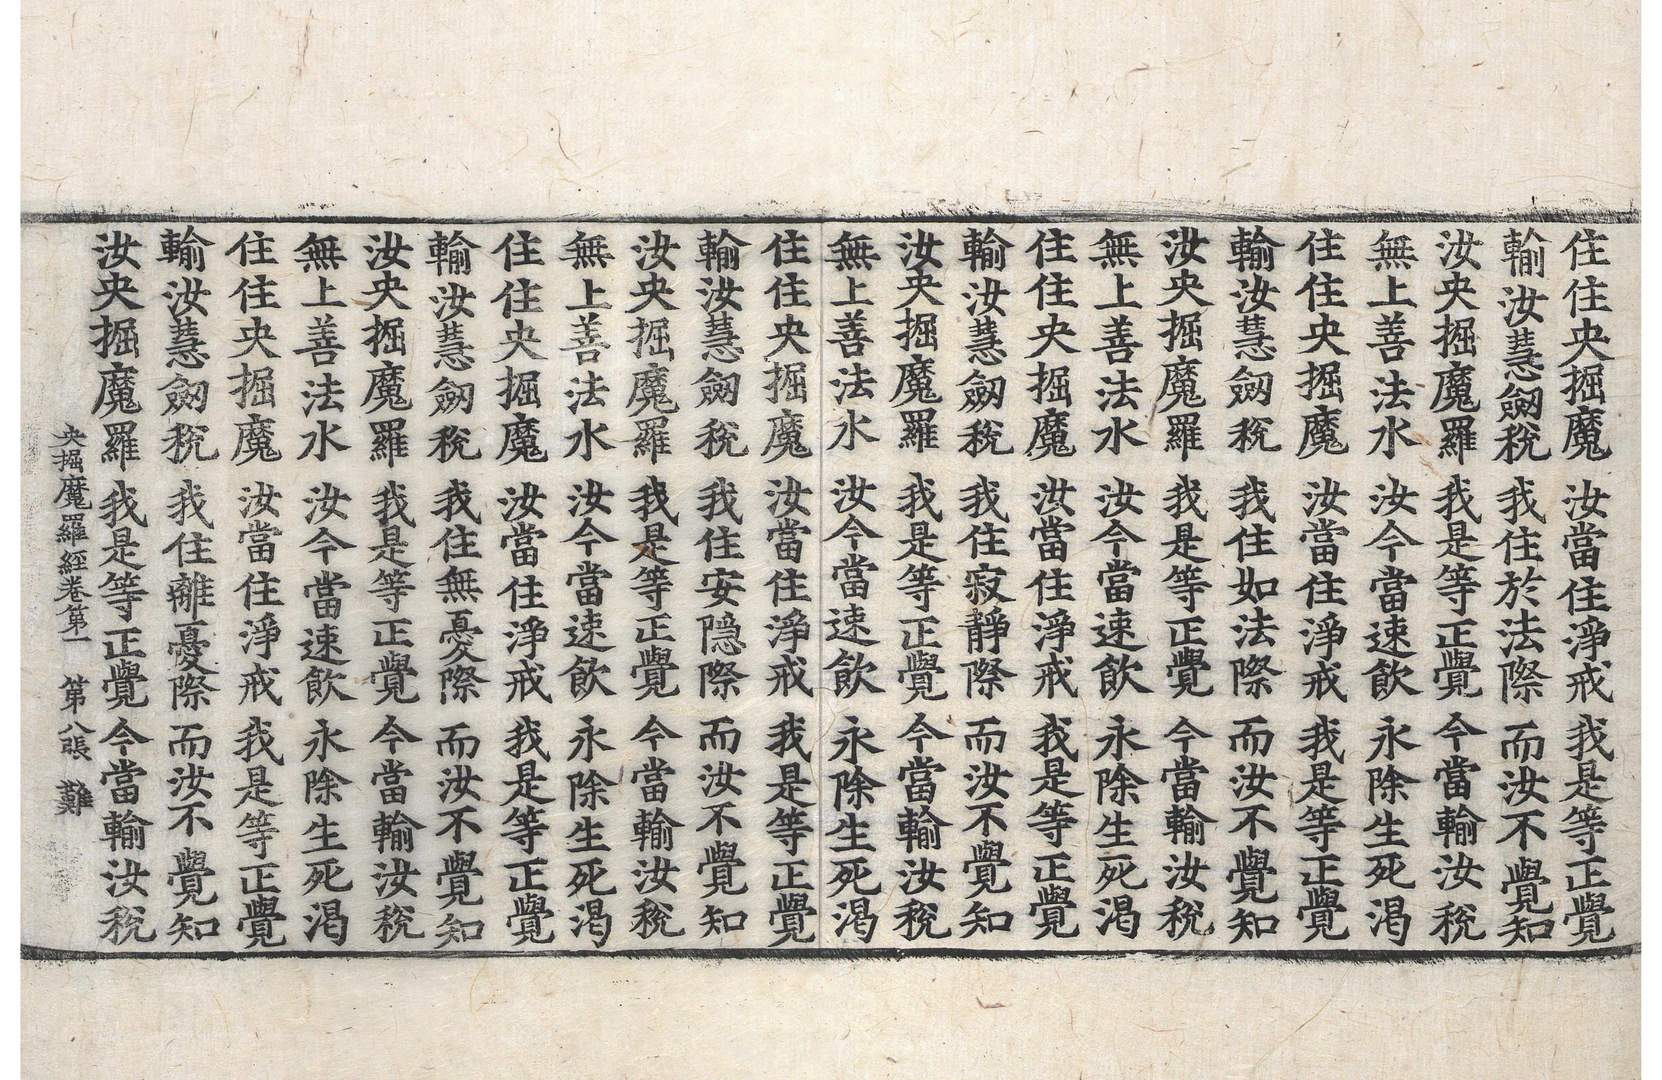 住住央掘魔 汝當住淨戒 我是等正覺
輸汝慧劒稅 我住於法際 而汝不覺知
汝央掘魔羅 我是等正覺 今當輸汝稅
無上善法水 汝今當速飲 永除生死渴
住住央掘魔 汝當住淨戒 我是等正覺
輸汝慧劒稅 我住如法際 而汝不覺知
汝央掘魔羅 我是等正覺 今當輸汝稅
無上善法水 汝今當速飲 永除生死渴
住住央掘魔 汝當住淨戒 我是等正覺
輸汝慧劒稅 我住寂靜際 而汝不覺知
汝央掘魔羅 我是等正覺 今當輸汝稅
無上善法水 汝今當速飲 永除生死渴
住住央掘魔 汝當住淨戒 我是等正覺
輸汝慧劒稅 我住安隱際 而汝不覺知
汝央掘魔羅 我是等正覺 今當輸汝稅
無上善法水 汝今當速飲 永除生死渴
住住央掘魔 汝當住淨戒 我是等正覺
輸汝慧劒稅 我住無憂際 而汝不覺知
汝央掘魔羅 我是等正覺 今當輸汝稅
無上善法水 汝今當速飲 永除生死渴
住住央掘魔 汝當住淨戒 我是等正覺
輸汝慧劒稅 我住離憂際 而汝不覺知
汝央掘魔羅 我是等正覺 今當輸汝稅
央掘魔羅經卷第一 第八張 難